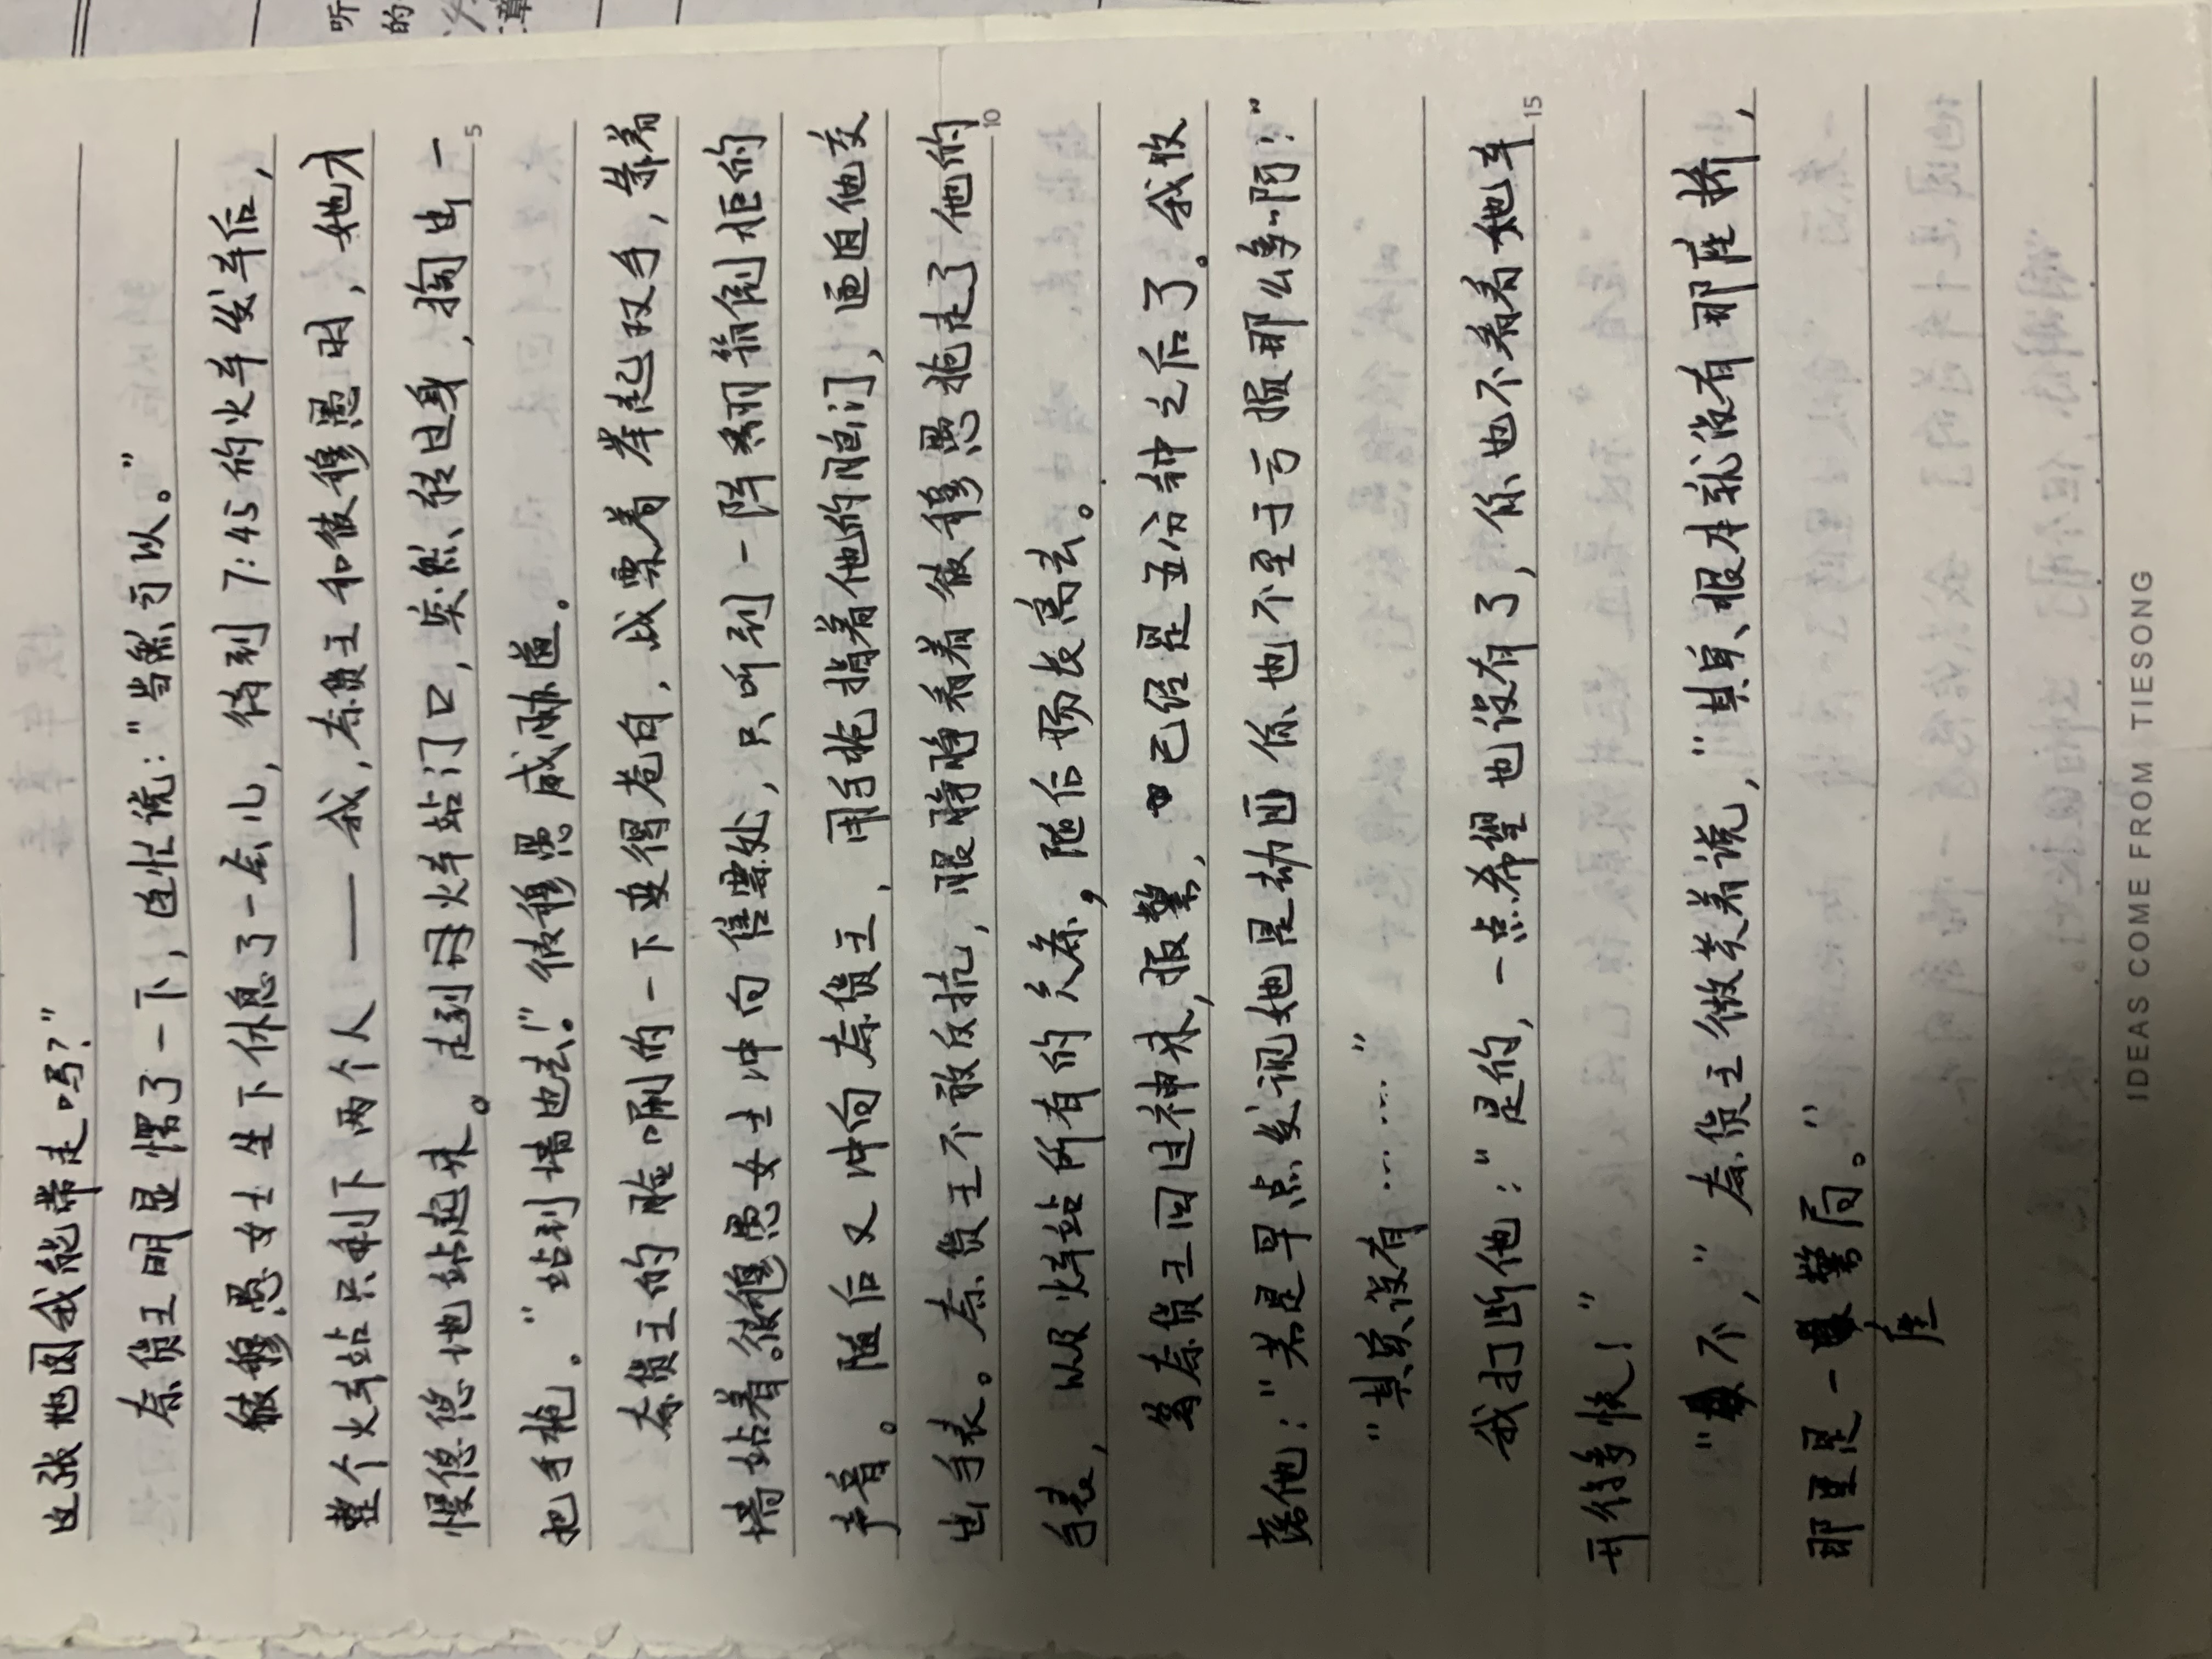 这张地图我能带走吗？”
奈货王明显愣了一下，连忙说：“当然可以。”
彼穆愚女士坐下休息了一会儿，待到 7:45 的火车发车后，
整个火车站只剩下两个人 —— 我，奈货王和彼穆愚时，她才
慢悠悠地站起来。走到火车站门口，突然转过身，掏出一
把手枪。“站到墙边去！”彼穆愚威胁道。
奈货王的脸唰的一下变得苍白，战栗着举起双手，靠着
墙站着。彼穆愚女士冲向售票处，只听到一阵翻箱倒柜的
声音。随后又冲向奈货王，用手枪指着他的脑门，逼迫他交
出手表。奈货王不敢反抗，眼睁睁看着彼穆愚抢走了他的
手表，以及火车站所有的欠条，随后扬长离去。
等奈货王回过神来，报警，已经是五分钟之后了。我牧
落他：“若是早点发现她是劫匪你也不至于亏损那么多啊！”
“其实没有……”
我打断他：“是的，一点希望也没有了，你也不看看她车
开得多快！”
“不，”奈货王微笑着说，“其实根本就没有那座桥，
那里是一座警局。”
5
10
15
IDEAS COME FROM TIESONG
听
的
章